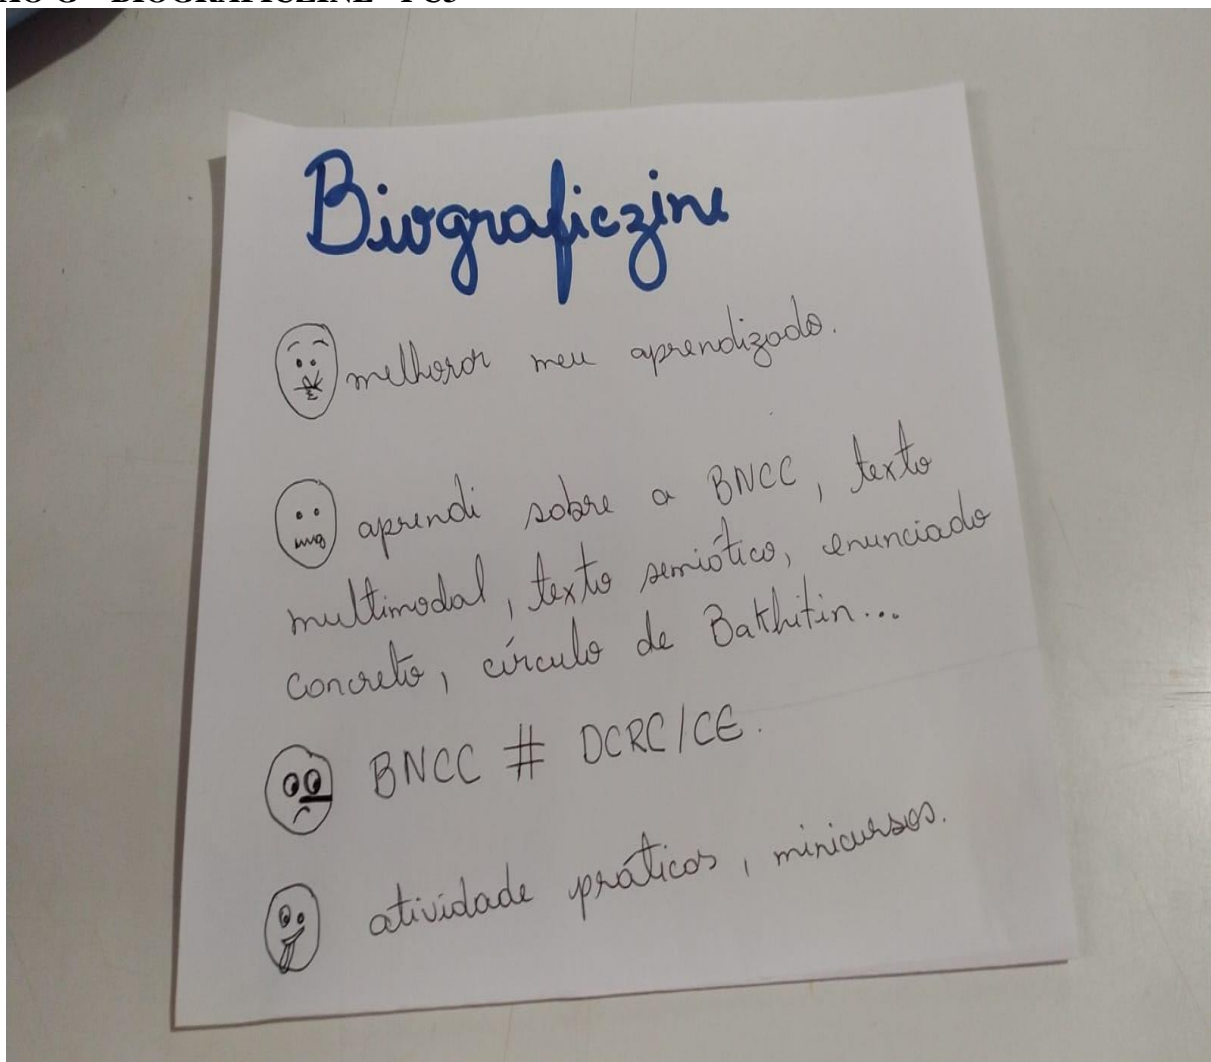 Biograficzine
melhorar meu aprendizado.
aprendi sobre a BNCC, texto
multimodal, texto semiótico, enunciado
concreto, círculo de Bakhitin...
BNCC # DCRC/CE.
atividade práticas, minicursos.